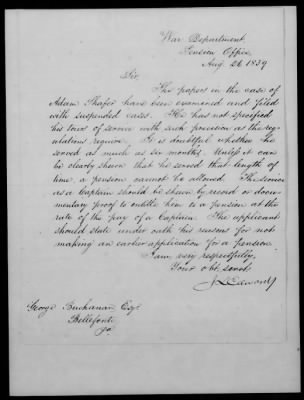 War Department,
Pension Office,
Aug. 26 1839
Sir,
The papers in the case of
Adam Shafer have been examined and filed
with suspended cases. He has not specified
his tours of service with such precision as the reg-
ulations require. It is doubtful whether he
served as much as six months. Unless it can
be clearly shown that he served that length of
time, a pension cannot be allowed. The service
as a Captain should be shown by record or docu-
mentary proof to entitle him to a pension at the
rate of the pay of a Captain. The applicant
should state under oath his reasons for not
making an earlier application for a pension.
I am, very respectfully,
Your obt. servt.
J L Edwards
George Buchanan Esqr.
Bellefonte
Pa